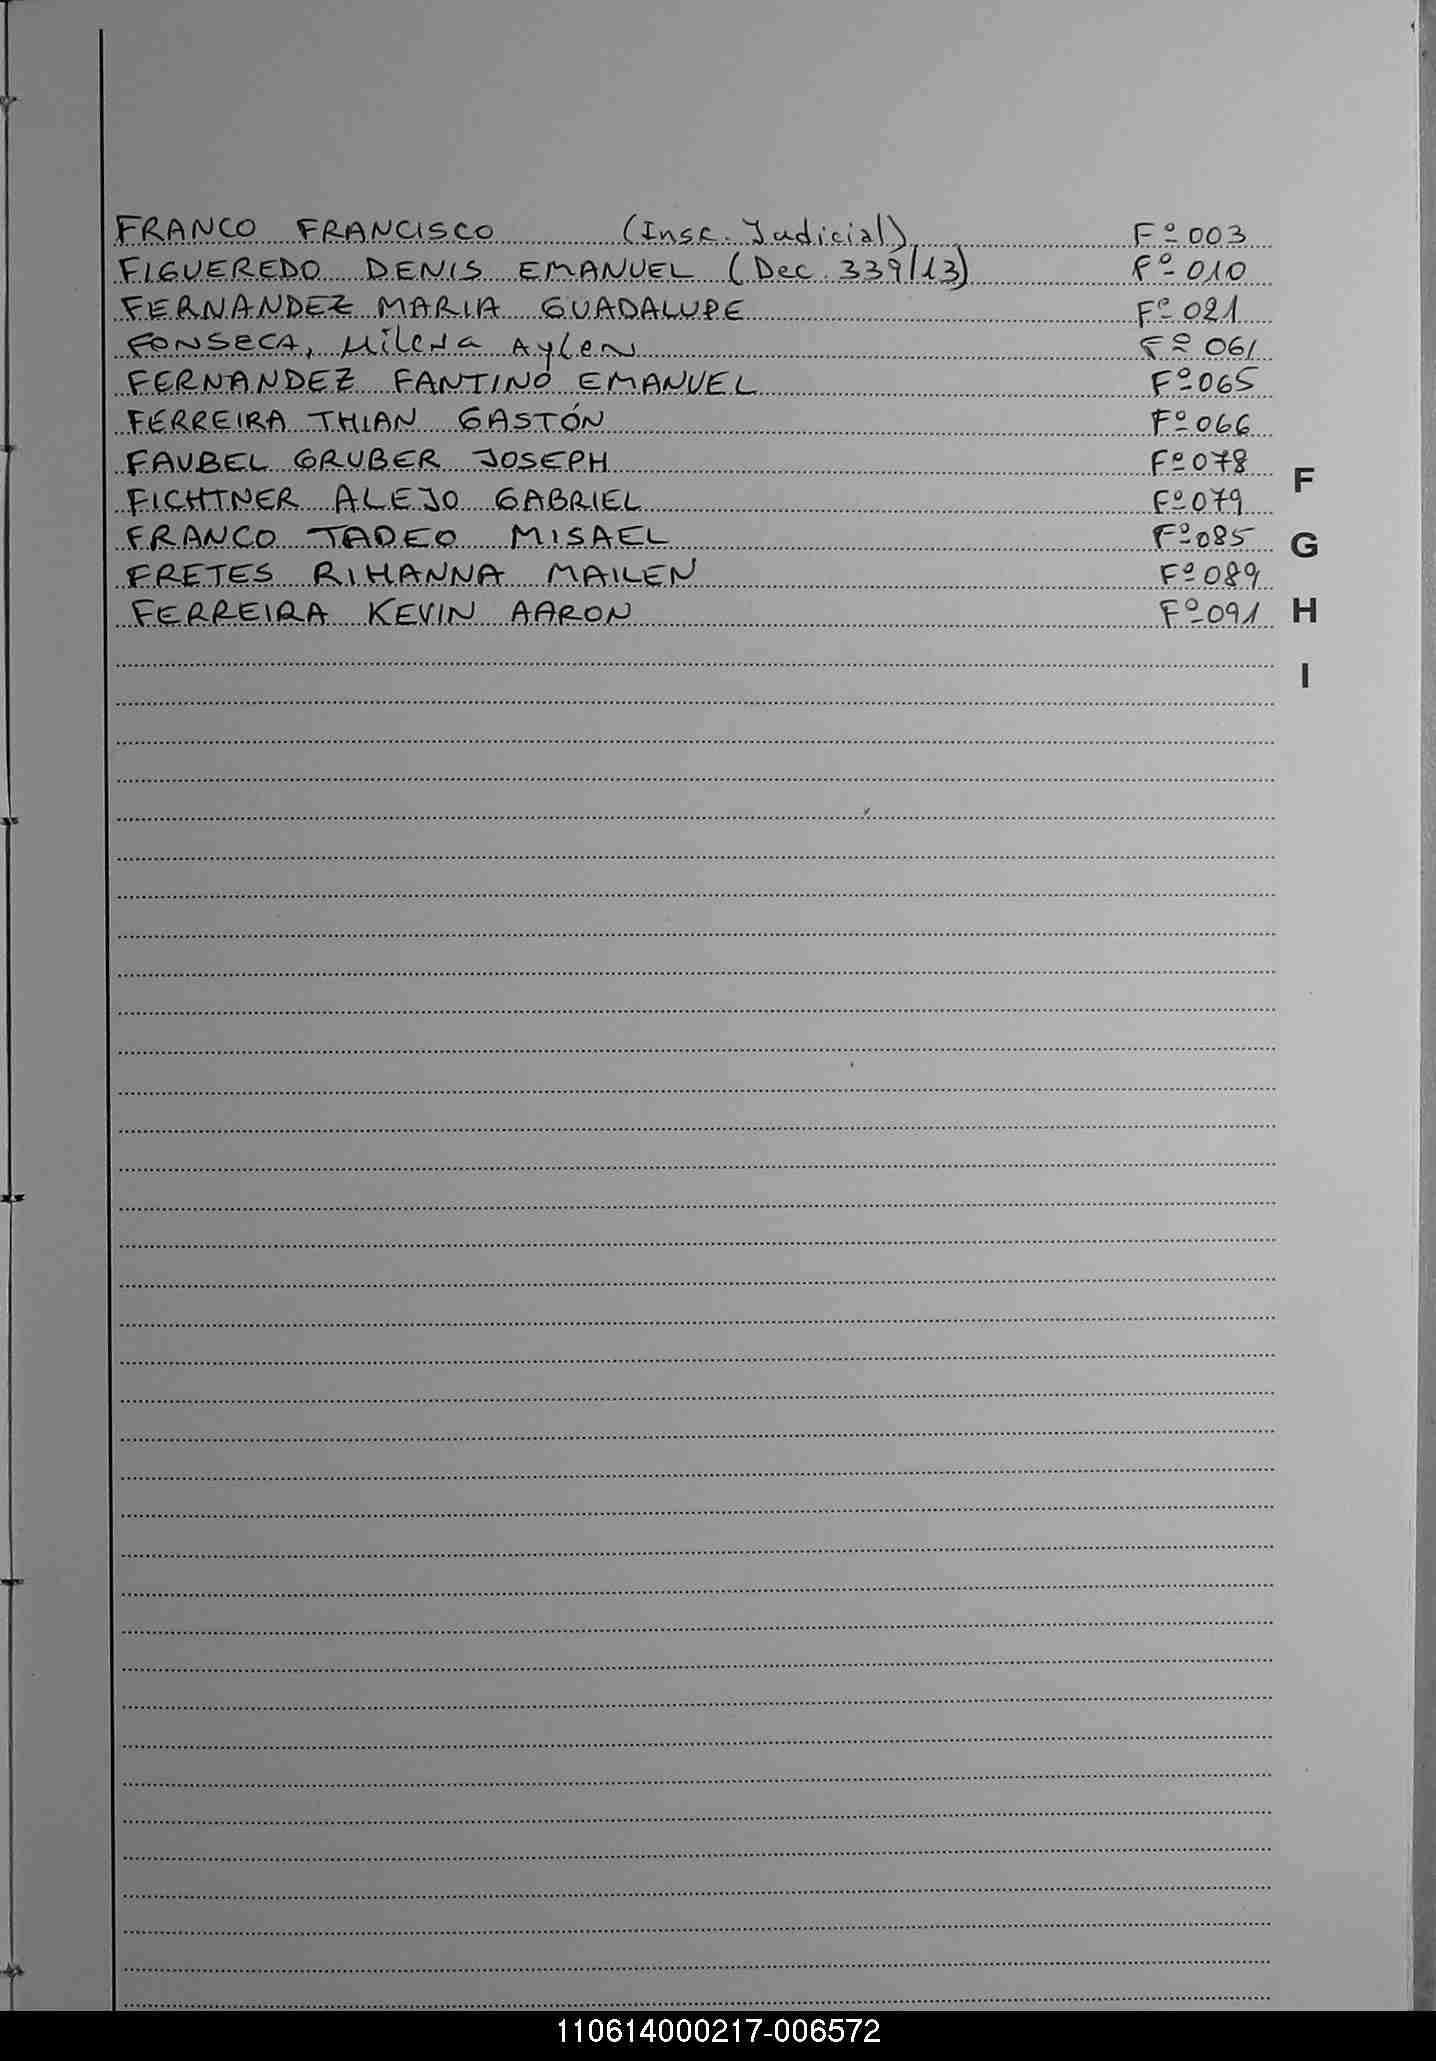 FRANCO FRANCISCO (Insc. Judicial) Fº 003
FIGUEREDO DENIS EMANUEL (Dec. 339/13) Fº 010
FERNANDEZ MARIA GUADALUPE Fº 021
FONSECA, Milena Aylen Fº 061
FERNANDEZ FANTINO EMANUEL Fº 065
FERREIRA THIAN GASTÓN Fº 066
FAUBEL GRUBER JOSEPH Fº 078
FICHTNER ALEJO GABRIEL Fº 079
FRANCO TADEO MISAEL Fº 085
FRETES RIHANNA MAILEN Fº 089
FERREIRA KEVIN AARON Fº 091
F
G
H
I
110614000217-006572